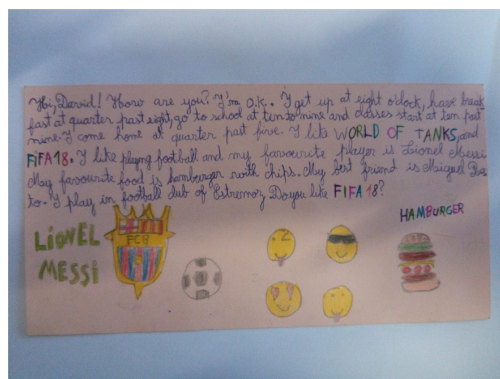 Hi, David! How are you? I'm O.K. I get up at eight o'clock, have break
fast at quarter past eight, go to school at ten to nine and classes start at ten past
nine. I come home at quarter past five. I like WORLD OF TANKS, and
FIFA 18. I like playng football and my favourite player is Lionel Messi
My favourite food is hamburger with chips. My best friend is Miguel
to. I play in football club of Estremoz Do you like FIFA 18?
HAMBURGER
LIONEL
MESSI
FCB